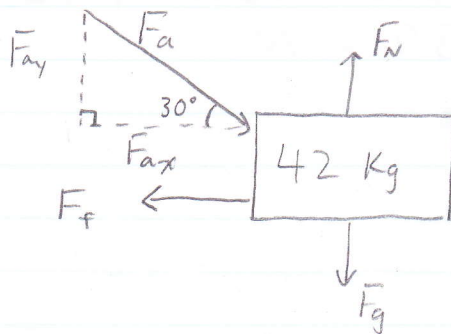 F_a
F_ay
F_N
30°
F_ax
42 Kg
F_f
F_g